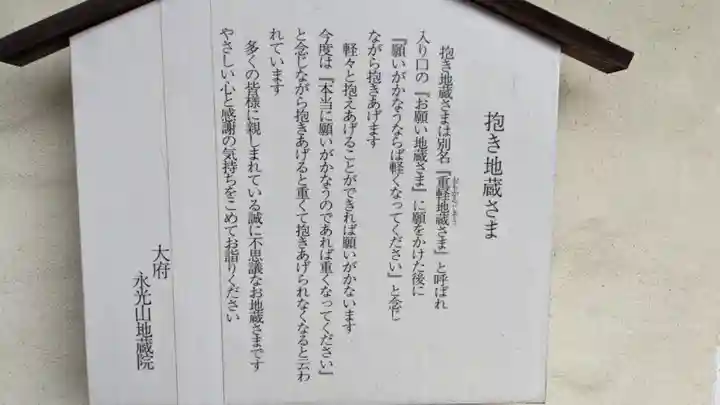 抱き地蔵さま
抱き地蔵さまは別名『重軽地蔵さま』と呼ばれ
入り口の『お願い地蔵さま』に願をかけた後に
『願いがかなうならば軽くなってください』と念じ
ながら抱きあげます
軽々と抱えあげることができれば願いがかないます
今度は『本当に願いがかなうのであれば重くなってください』
と念じながら抱きあげると重くて抱きあげられなくなると云わ
れています
多くの皆様に親しまれている誠に不思議なお地蔵さまです
やさしい心と感謝の気持ちをこめてお詣りください
大府
永光山地蔵院